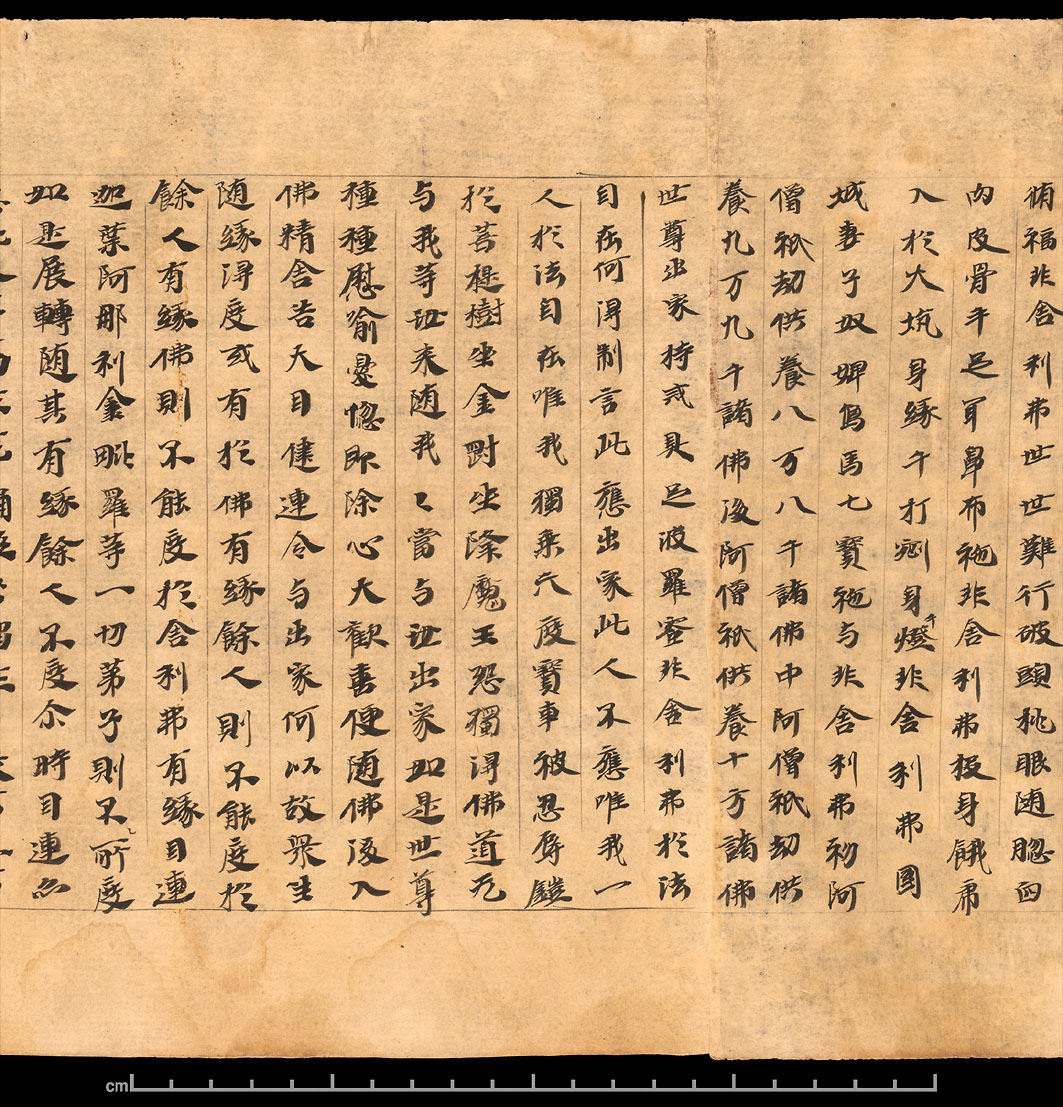 脩福非舍利弗世世難行破頭挑眼随𮌎血
肉皮骨手足耳鼻布施非舍利弗投身餓虎
入於火坑身縁千打㓨身千燈非舍利弗國
城妻子奴婢爲馬七寶施与非舍利弗初阿
僧祇劫供養八万八千諸佛中阿僧祇劫供
養九万九千諸佛後阿僧祇供養十方諸佛
世尊出家持戒具足波羅蜜非舍利弗於法
自在何得制言此應出家此人不應唯我一
人於法自在唯我獨乘六度寶車被忍辱鎧
於菩提樹坐金剛坐降魔王恐獨得佛道无
与我等汝来随我〻當与汝出家如是世尊
種種慰喻憂惱即除心大歡喜便随佛後入
佛精舍告大目揵連令与出家何以故衆生
随縁得度或有於佛有縁餘人則不能度於
餘人有縁佛則不能度於舍利弗有縁目連
迦葉阿那利金毗羅等一切弟子則不所度
如是展轉随其有縁餘人不度尒時目連亦